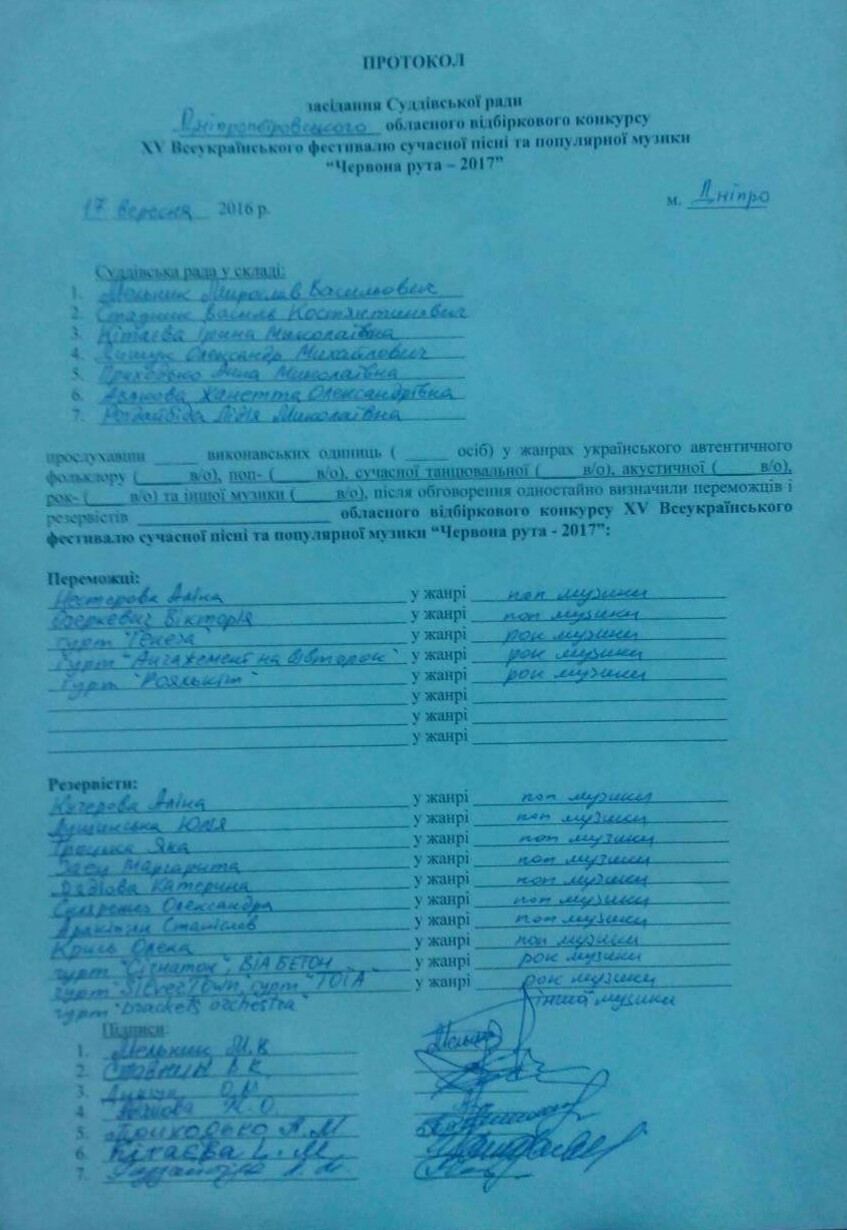 ПРОТОКОЛ
засідання Суддівської ради
Дніпропетровського обласного відбіркового конкурсу
XV Всеукраїнського фестивалю сучасної пісні та популярної музики
“Червона рута – 2017”
17 вересня 2016 р. м. Дніпро
Суддівська рада у складі:
1. Мельник Мирослав Васильович
2. Стадник Василь Костянтинович
3. Кітаєва Ірина Миколаївна
4. Олександр Михайлович
5. Приходько Анна Миколаївна
6. Жанетта Олександрівна
7. Лідія Миколаївна
прослухавши _____ виконавських одиниць ( _____ осіб) у жанрах українського автентичного
фольклору (_____ в/о), поп- (_____ в/о), сучасної танцювальної (_____ в/о), акустичної (_____ в/о),
рок- (_____ в/о) та іншої музики (_____ в/о), після обговорення одностайно визначили переможців і
резервістів ____________________ обласного відбіркового конкурсу XV Всеукраїнського
фестивалю сучасної пісні та популярної музики “Червона рута - 2017”:
Переможці:
Нестерова Аліна у жанрі поп музики
Вікторія у жанрі поп музики
гурт "Генеза" у жанрі рок музики
гурт "Ангажемент на вівторок" у жанрі рок музики
гурт "Роялькіт" у жанрі рок музики
у жанрі
у жанрі
у жанрі
Резервісти:
Кучерова Аліна у жанрі поп музики
Лущинська Юлія у жанрі поп музики
Яна у жанрі поп музики
Маргарита у жанрі поп музики
Катерина у жанрі поп музики
Олександра у жанрі поп музики
Станіслав у жанрі поп музики
Олена у жанрі поп музики
гурт "Сігнатон", ВІА БЕТОН у жанрі рок музики
гурт "SilverTown, гурт "ТОТА" у жанрі рок музики
гурт "brackets orchestra" іншої музики
Підписи
1. Мельник М.В
2. Стадник В.К.
3. О.М
4. Ж.О.
5. Приходько А.М
6. Кітаєва І.М
7.